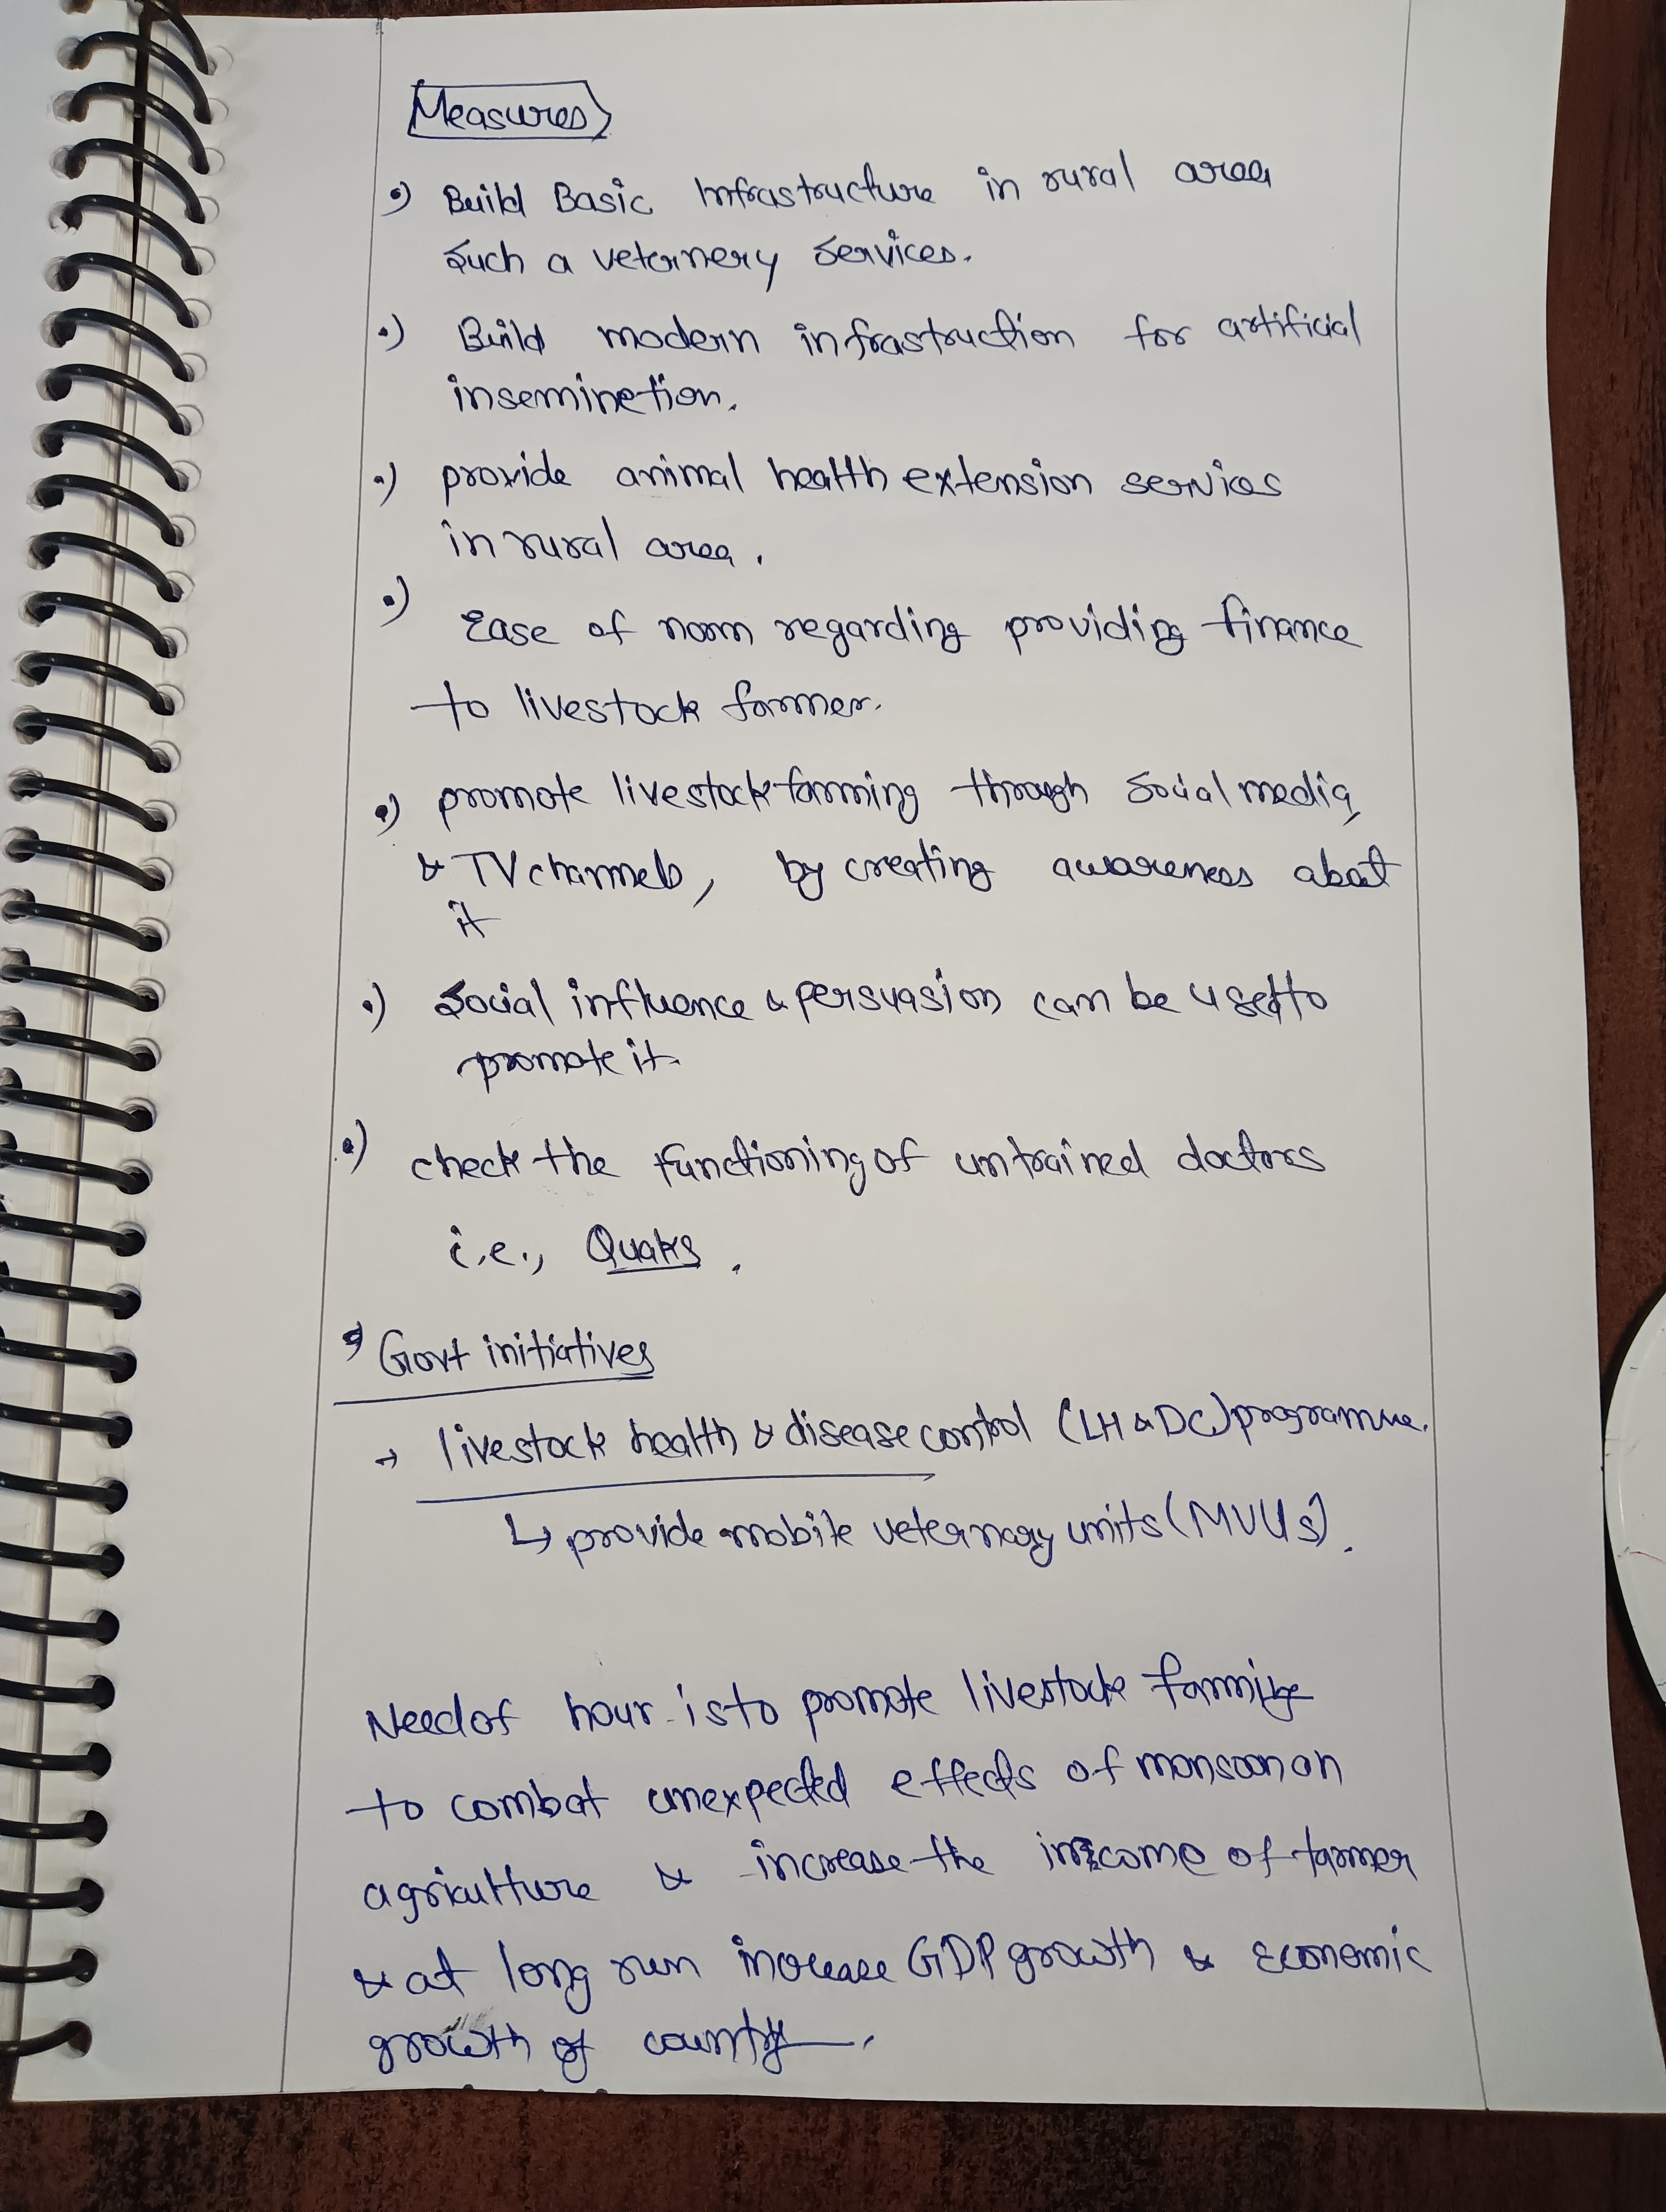 Measures
•) Build Basic Infrastructure in rural area
such a veternery services.
•) Build modern infrastruction for artificial
inseminetion.
•) provide animal health extension services
in rural area.
•) Ease of norm regarding providing finance
to livestock farmer.
•) promote livestock farming through social media,
& TV channels, by creating awareness about
it
•) Social influence & persuasion can be used to
promote it.
•) check the functioning of untrained doctors
i.e., Quaks.
• Govt initiatives
→ livestock health & disease control (LH & DC) programme.
↳ provide mobile veternary units (MVUs).
Need of hour is to promote livestock farming
to combat unexpected effects of monsoon on
agriculture & increase the income of farmer
& at long run increase GDP growth & Economic
growth of county.